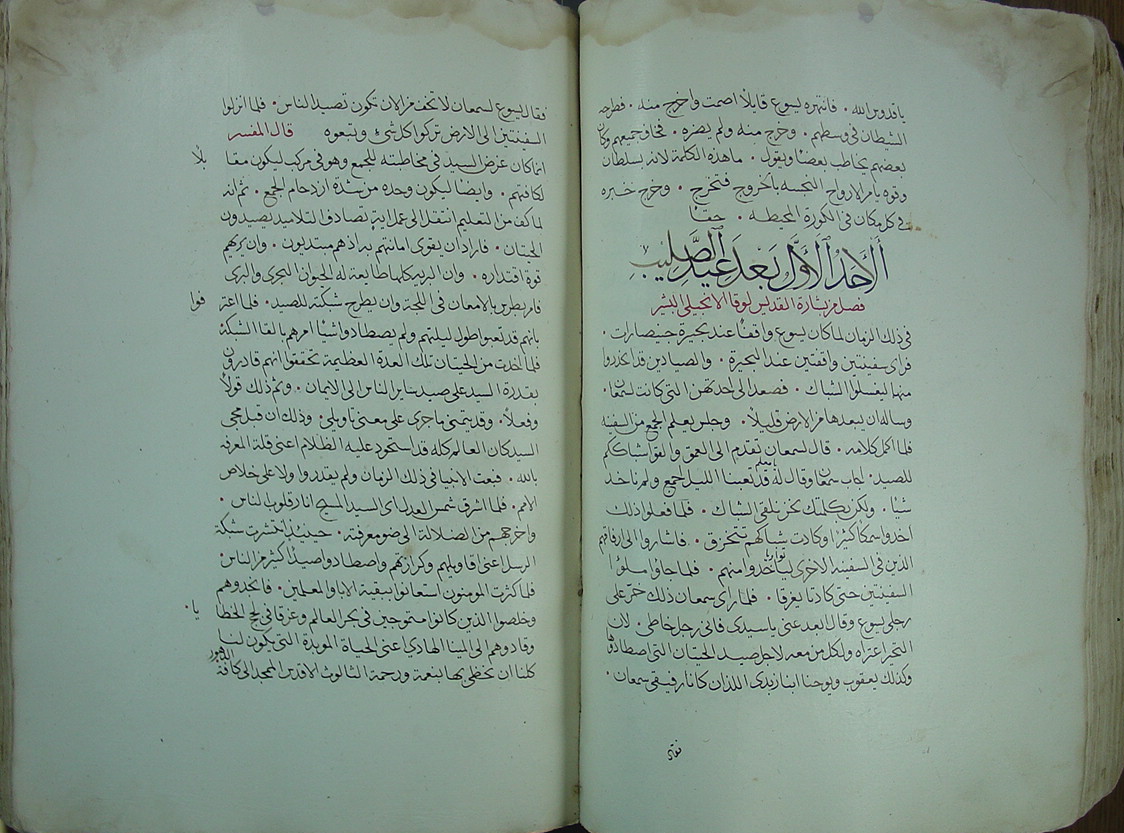 يا قدوس الله . فانتهره يسوع قايلًا اصمت واخرج منه . فطرحه
الشيطان في وسطهم . وخرج منه ولم يضره . فخاف جميعهم وكان
بعضهم يخاطب بعضًا ويقول . ما هذه الكلمة لانه بسلطان
وقوه يامر الارواح النجسه بالخروج فتخرج . وخرج خبره
في كل مكان في الكورة المحيطه . حقًا
الأحد الأول بعد عيد الصليب
فصل من بشارة القديس لوقا الانجيلي البشير
في ذلك الزمان لما كان يسوع واقفًا عند بحيرة جنيصارات .
فراى سفينتين واقفتين عند البحيرة . والصيادين قد انحدروا
منها ليغسلوا الشباك . فصعد الى احدهن التي كانت لسمعان .
وساله ان يبعدها من الارض قليلًا . وجلس يعلم الجمع من السفينه
فلما اكمل كلامه . قال لسمعان تقدم الى العمق والقوا شباككم
للصيد . اجاب سمعان وقال له يا معلم قد تعبنا الليل اجمع ولم ناخذ
شيًا . ولكن بكلمتك نحن نلقي الشباك . فلما فعلوا ذلك
اخذوا سمكًا كثيرًا وكادت شباكهم تتخرق . فاشاروا الى رفاقهم
الذين في السفينه الاخرى لياتوا منهم . فلما جاؤا ملؤا
السفينتين حتى كادتا يغرقا . فلما راى سمعان ذلك خر على
رجلي يسوع وقال ابعد عني يا سيدي فاني رجل خاطي . لان
التحير اعتراه ولكل من معه لاجل صيد الحيتان التي اصطادوا
وكذلك يعقوب ويوحنا ابنا زبدى اللذان كانا رفيقي سمعان .
فقال
فقال ليسوع لسمعان لا تخف من الان تكون تصيد الناس . فلما انزلوا
السفينتين الى الارض تركوا كل شي وتبعوه قال المفسر
انما كان غرض السيد في مخاطبته للجمع وهو في مركب ليكون مقابلًا
لكافتهم . وايضًا ليكون وحده من شدة ازدحام الجمع . ثم انه
لما كف من التعليم انتقل الى عمل اية تصادف التلاميذ يصيدون
الحيتان . فاراد ان يقوى امانتهم به اذ هم مبتديون . وان يريهم
قوة اقتداره . وان البريه كلها طايعة له الحيوان البحرى والبرى
فامر بطرس بالامعان في اللجة وان يطرح شبكته للصيد . فلما اعترفوا
بانهم قد تعبوا طول ليلتهم ولم يصطادوا شيًا امرهم بالقا الشبكة
فلما اخذت من الحيتان تلك العدة العظيمة تحققوا انهم قادرون
بقدرة السيد على صيد ساير الناس الى الايمان . وتم ذلك قولًا
وفعلًا . وقد يتمنى ما جرى على معنى تاويلي . وذلك ان قبل مجي
السيد كان العالم كله قد استحوذ عليه الظلام اعني قلة المعرفه
بالله . فبعث الانبيا في ذلك الزمان ولم يقدروا ولا على خلاص
الامم . فلما اشرق شمس العدل اى السيد المسيح انار قلوب الناس .
واخرجهم من الضلالة الى ضو معرفته . حينيذ انتشرت شبكة
الرسل اعني اقاويلهم وكرازتهم واصطادوا صيدًا كثير من الناس
فلما كثرت المومنون استعانوا ببقية الابا والمعلمين . فانجدوهم
وخلصوا الذين كانوا متموجين في بحر العالم وغرقا في لج الخطايا .
وقادوهم الى المينا الهادي اعني الحياة الموبدة التي يكون لنا
كلنا ان نحظى بها بنعمة ورحمة الثالوث الاقدس الممجد الى كافة الدهور